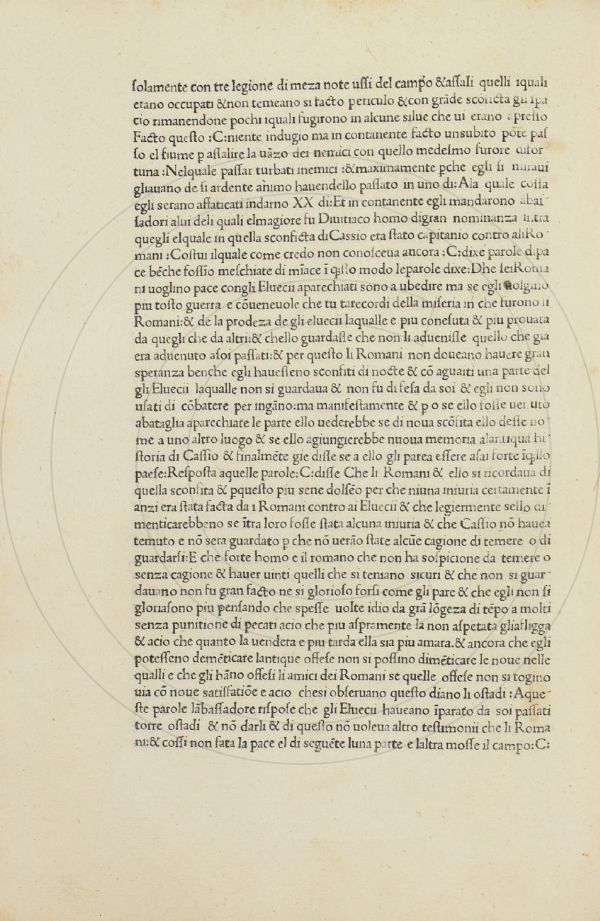 ſolamente con tre legione di meza note uſſi del campo &aſſali quelli iquali
erano occupati &non temeano si facto periculo &con grãde sconficta gli ſpa
cio rimanendone pochi iquali fugirono in alcune silue che ui erano apreſſo
Facto queſto :C:niente indugio ma in contanente facto unſubito pote paſ
ſo el fiume p aſſalire la uãzo dei nemici con quello medeſmo furore &for
tuna :Nelquale paſſar turbati inemici :&maximamente pche egli si maraui
gliauano de si ardente animo hauendello paſſato in uno di:Ala quale coſſa
egli serano affaticati indarno XX di:Et in contanente egli mandarono abaſ
ſadori alui deli quali elmagiore fu Diuitiaco homo digran nominanza intra
quegli elquale in quella sconficta diCaſſio era ſtato capitanio contro aliRo
mani :Coſtui ilquale come credo non conoſceua ancora :C:dixe parole dipa
ce bẽche foſſio meſchiate di mĩace ĩ q̃llo modo leparole dixe:Dhe ſeiRoma
ni uoglino pace congli Eluecii aparechiati sono a ubedire ma se egli uolgino
piu toſto guerra e cõueneuole che tu tarecordi della miſeria in che furono ii
Romani:& de la prodeza de gli eluecii laqualle e piu conoſuta & piu prouata
da quegli che da altri:& chello guardaſſe che non li adueniſſe quello che gia
era aduenuto aſoi paſſati:& per queſto li Romani non doueano hauere gran
ſperanza benche egli haueſſeno sconfiti di nocte & cõ aguaiti una parte del
gli Eluecii laqualle non si guardaua & non fu difeſa da soi & egli non sono
uſati di cõbatere per ingãno:ma manifeſtamente & p o se ello foſſe uenuto
abataglia aparechiate le parte ello uederebbe se di noua scõfita ello deſſe no
me a uno altro luogo & se ello agiungierebbe nuoua memoria alantiqua hi
ſtoria di Caſſio & finalmẽte gie diſſe se a ello gli parea eſſere aſai forte ĩq̃llo
paeſe:Reſpoſta aquelle parole:C:diſſe Che li Romani & ello si ricordaua di
quella sconfita & pqueſto piu sene dolſeo per che niuna iniuria certamente ĩ
anzi era ſtata facta da i Romani contro ai Eluecii & che legiermente sello di
menticarebbeno se ĩtra loro foſſe ſtata alcuna iniuria & che Caſſio nõ hauea
temuto e nõ sera guardato p che nõ uerão ſtate alcũe cagione di temere o di
guardarſi:E che forte homo e il romano che non ha soſpicione da temere o
senza cagione & hauer uinti quelli che si teniano sicuri & che non si guar
dauano non fu gran facto ne si glorioſo forſi come gli pare & che egli non si
gloriaſono piu penſando che ſpeſſe uolte idio da grã lõgeza di tẽpo a molti
senza punitione di pecati acio che piu aſpramente la non aſpetata gliaffligga
& acio che quanto la uendeta e piu tarda ella sia piu amara.& ancora che egli
poteſſeno demẽticare lantique offeſe non si poſſino dimẽticare le noue nelle
qualli e che gli hãno offeſi li amici dei Romani se quelle offeſe non si togino
uia cõ noue satiſfatiõe e acio cheſi obſeruano queſto diano li oſtadi :Aque
ſte parole lãbaſſadore riſpoſe che gli Eluecii haueano ĩparato da soi paſſati
torre oſtadi & nõ darli & di queſto nõ uoleua altro teſtimonii che li Roma
ni:& coſſi non fata la pace el di seguẽte luna parte e laltra moſſe il campo:C: